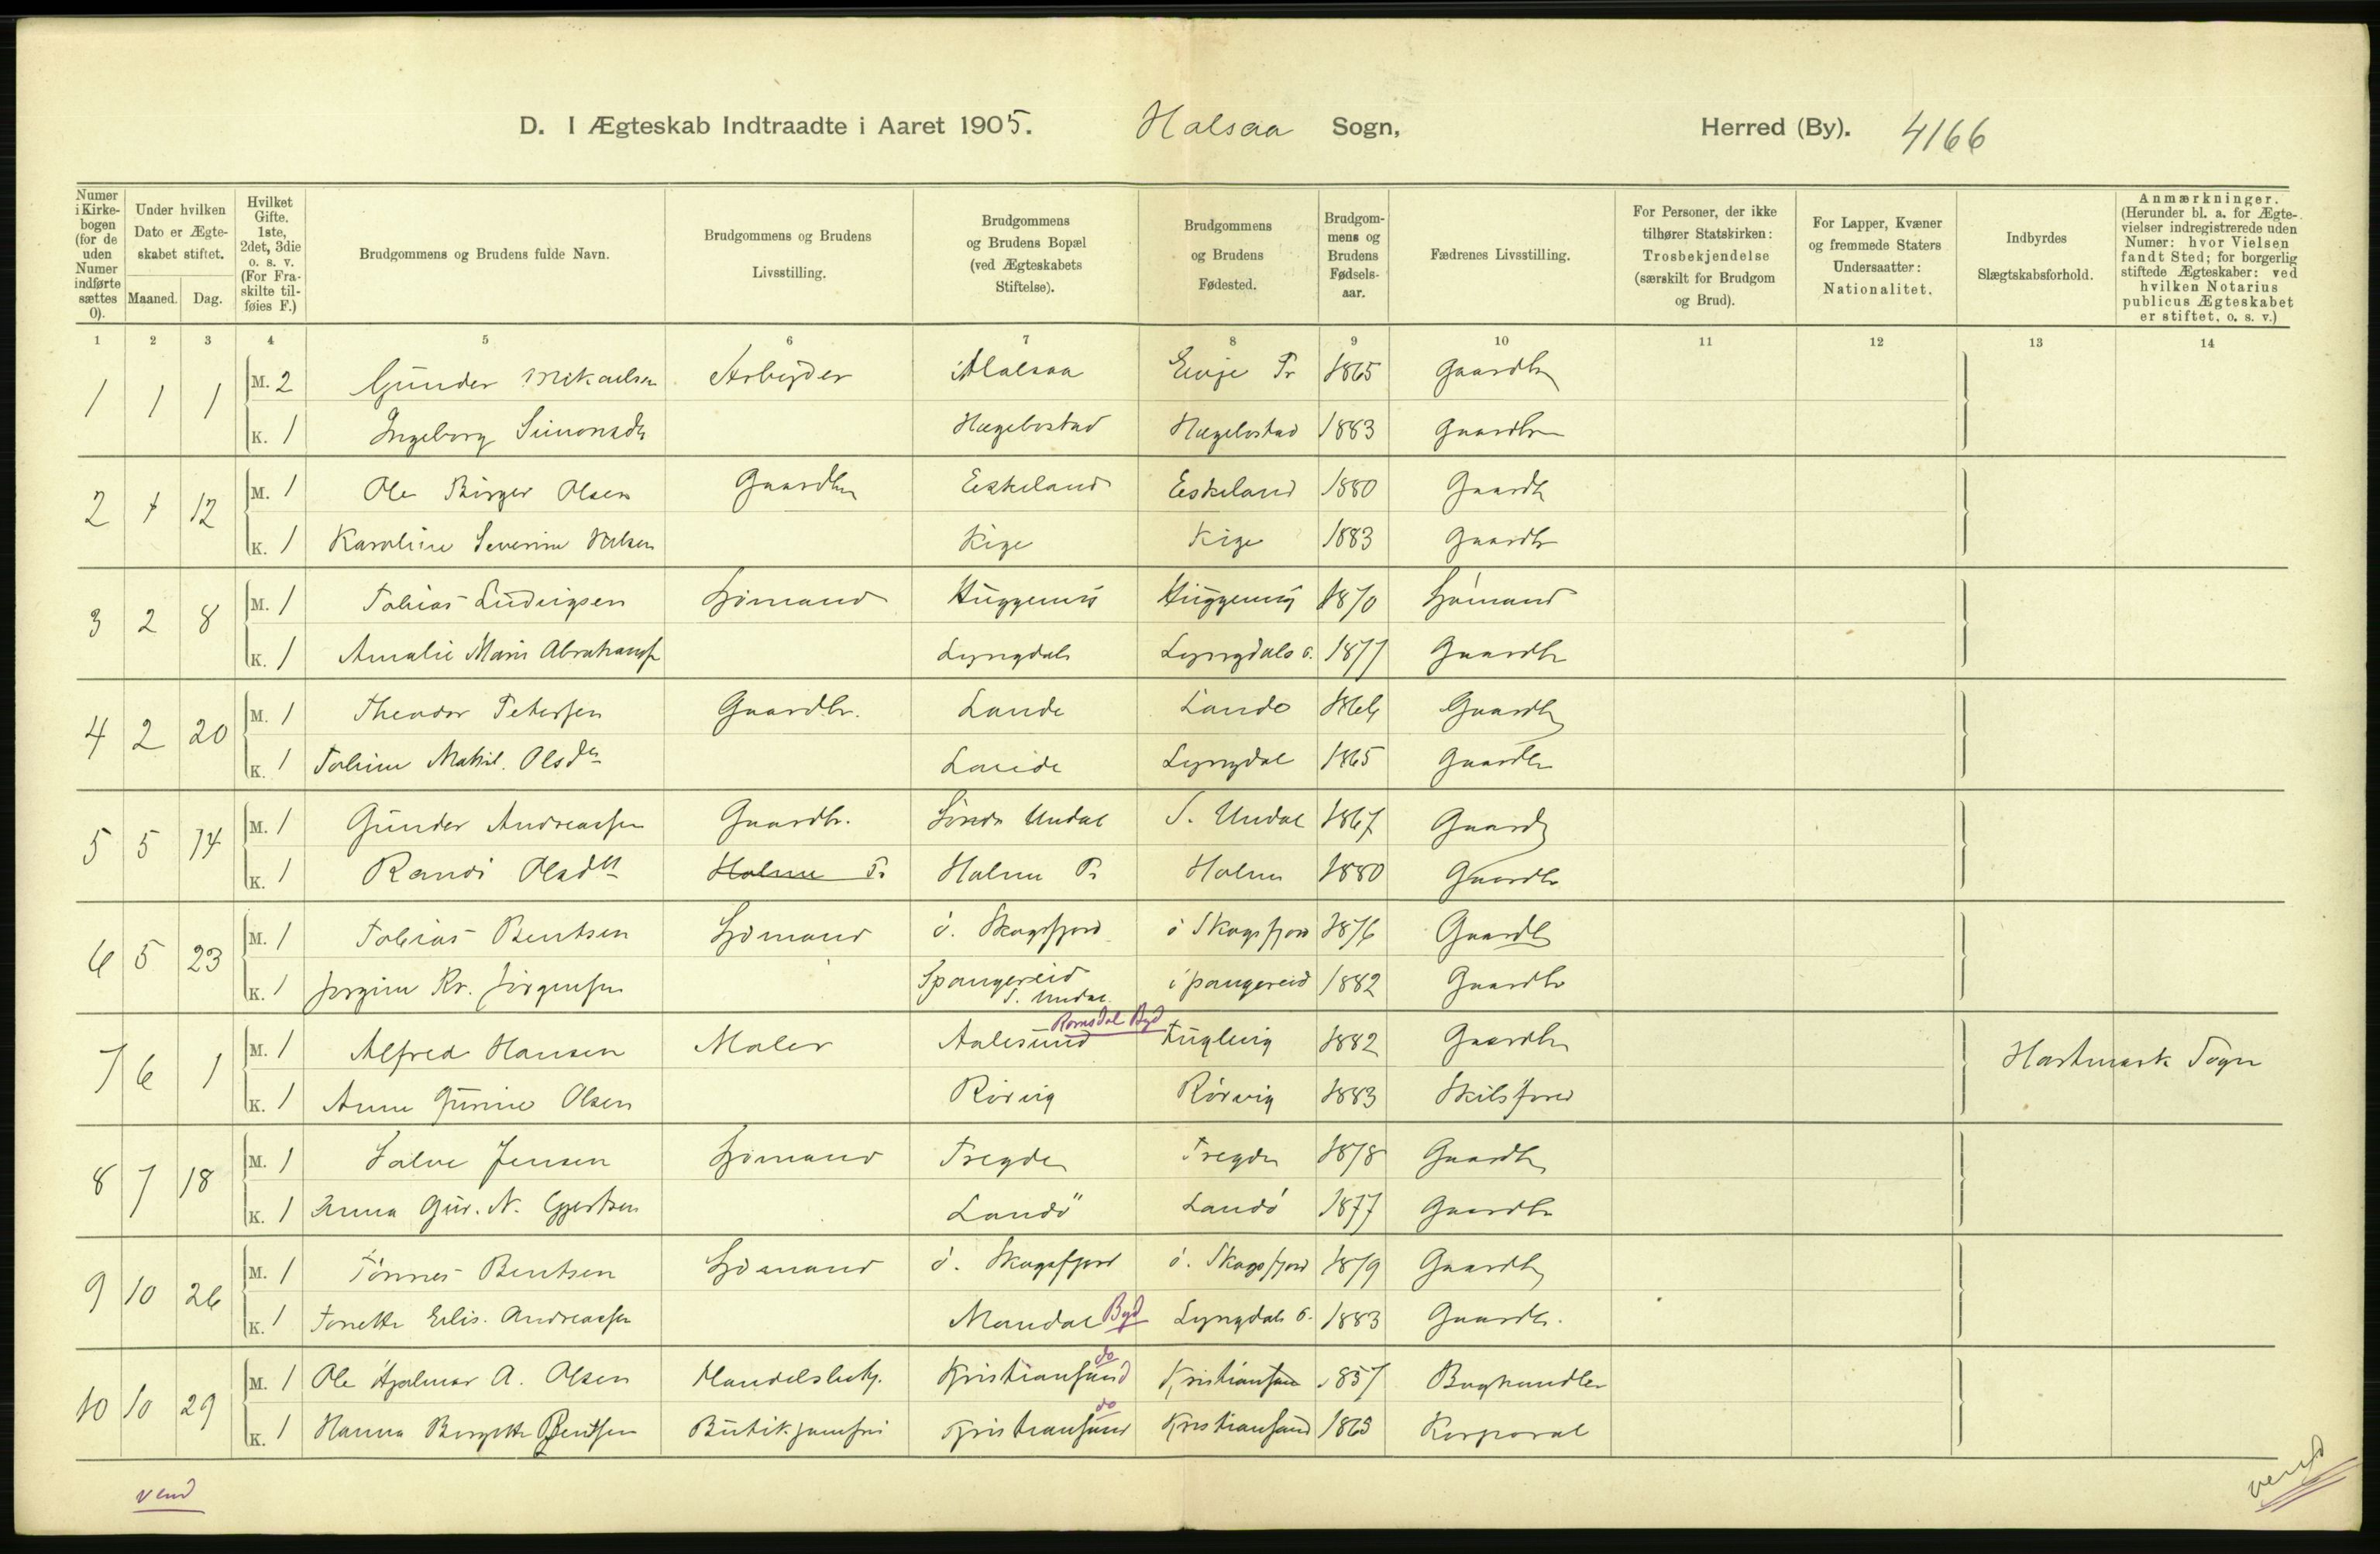 D. I Ægteskab Indtraadte i Aaret 1905. Halsaa Sogn, Herred (By). 4166
Numer i Kirkebogen (for de uden Numer indførte sættes 0).
Under hvilken Dato er Ægteskabet stiftet.
Maaned. Dag.
Hvilket Gifte. 1ste, 2det, 3die o. s. v. (For Fraskilte tilføies F.)
Brudgommens og Brudens fulde Navn.
Brudgommens og Brudens Livsstilling.
Brudgommens og Brudens Bopæl (ved Ægteskabets Stiftelse).
Brudgommens og Brudens Fødested.
Brudgommens og Brudens Fødselsaar.
Fædrenes Livsstilling.
For Personer, der ikke tilhører Statskirken: Trosbekjendelse (særskilt for Brudgom og Brud).
For Lapper, Kvæner og fremmede Staters Undersaatter: Nationalitet.
Indbyrdes Slægtskabsforhold.
Anmærkninger. (Herunder bl. a. for Ægtevielser indregistrerede uden Numer: hvor Vielsen fandt Sted; for borgerlig stiftede Ægteskaber: ved hvilken Notarius publicus Ægteskabet er stiftet, o. s. v.)
1 2 3 4 5 6 7 8 9 10 11 12 13 14
1 1 1 M. 2 Gunder Mikaelsen Arbeyder Halsaa Evje Pr 1865 Gaardbr
K. 1 Ingeborg Simonsdr Hægebostad Hægebostad 1883 Gaardbr
2 1 12 M. 1 Ole Birger Olsen Gaardbr Eskeland Eskeland 1880 Gaardb
K. 1 Karoline Severine Nilsen Kige Kige 1883 Gaardbr
3 2 8 M. 1 Tobias Ludvigsen Sjömand 1870 Sjömand
K. 1 Amalie Marie Abrahamsen Lyngdals Lyngdals 1877 Gaardbr
4 2 20 M. 1 Theodor Petersen Gaardbr. Lande Lande Gaardb
K. 1 Tobine Mathil. Olsdtr Lande Lyngdal 1865 Gaardbr
5 5 14 M. 1 Gunder Andreassen Gaardbr. Söndr Undal S. Undal 1867 Gaardb
K. 1 Randi Olsdtr Holme Pr Holme Pr Holme 1880 Gaardbr
6 5 23 M. 1 Tobias Bentsen Sjömand ö. Skogsfjord ö Skogsfjord 1876 Gaardb
K. 1 Jorgine Kr. Jörgensen Spangereid S. Undal Spangereid 1882 Gaardbr
7 6 1 M. 1 Alfred Hansen Maler Aalesund Romsdal Byd Fuglevig 1882 Gaardbr
K. 1 Anne Gurine Olsen Rörvig Rörvig 1883 Skibsförer
Hartmark Sogn
8 7 18 M. 1 Salve Jensen Sjömand Tregde Tregde 1878 Gaardbr
K. 1 Anna Gur. N. Gjertsen Landö Landö 1877 Gaardbr
9 10 26 M. 1 Tönnes Bentsen Sjömand ö. Skogsfjord ö. Skogsfjord 1879 Gaardbr
K. 1 Tonette Elis. Andreassen Mandal Byd Lyngdals 1883 Gaardbr.
10 10 29 M. 1 Ole Hjalmar A. Olsen Handelsbetj. Kristiansund do Kristiansund 1857 Boghandler
K. 1 Hanna Birgitte Bentsen Butikjomfru Kristiansund do Kristiansund Korporal
vend
vend